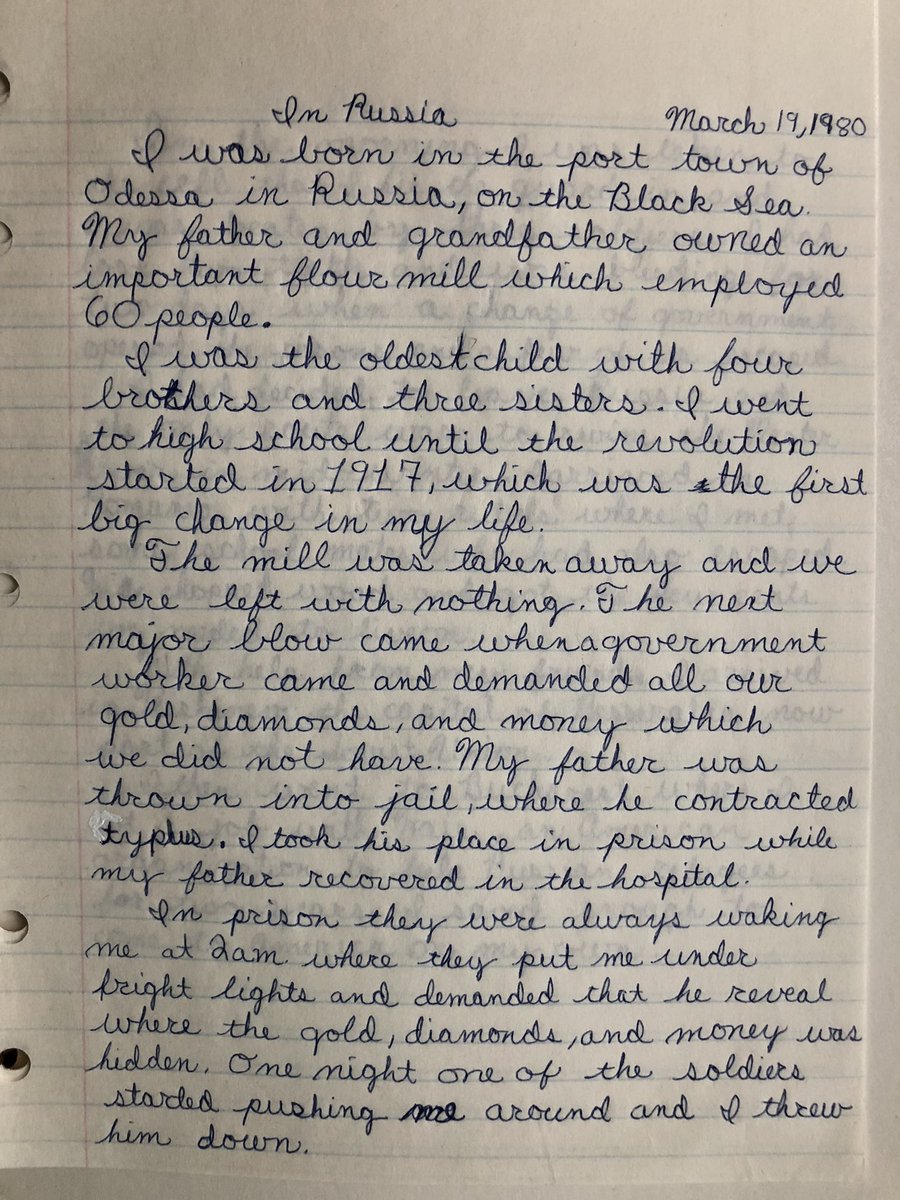 In Russia March 19, 1980
I was born in the port town of
Odessa in Russia, on the Black Sea.
My father and grandfather owned an
important flour mill which employed
60 people.
I was the oldest child with four
brothers and three sisters. I went
to high school until the revolution
started in 1917, which was the first
big change in my life.
The mill was taken away and we
were left with nothing. The next
major blow came when a government
worker came and demanded all our
gold, diamonds, and money which
we did not have. My father was
thrown into jail, where he contracted
typhus. I took his place in prison while
my father recovered in the hospital.
In prison they were always waking
me at 2am. where they put me under
bright lights and demanded that he reveal
where the gold, diamonds, and money was
hidden. One night one of the soldiers
started pushing me around and I threw
him down.